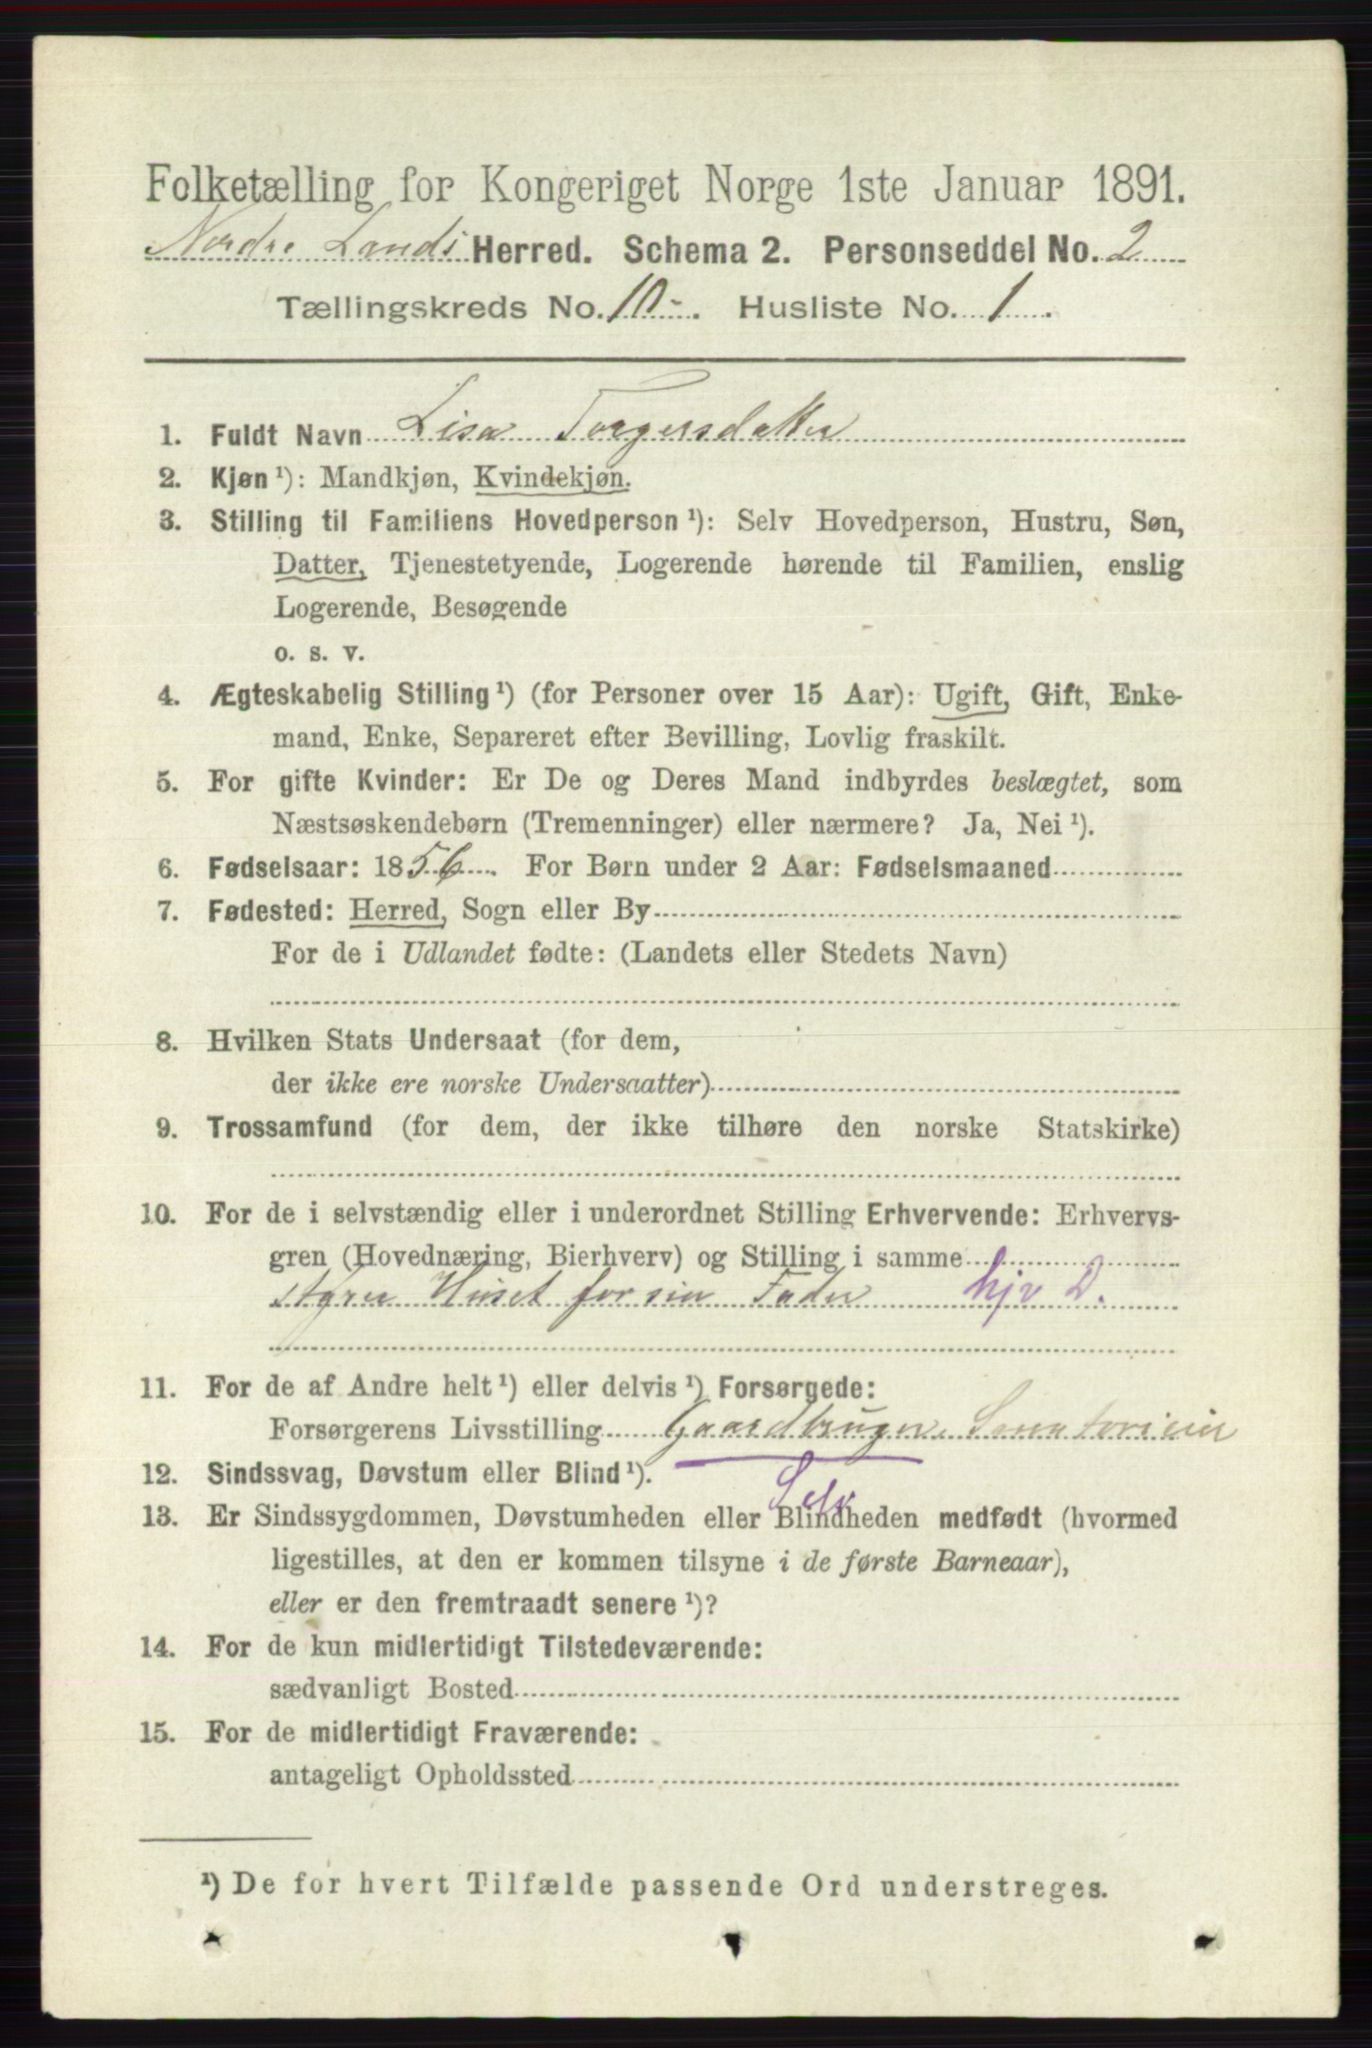 Folketælling for Kongeriget Norge 1ste Januar 1891.
Nordre Lands Herred. Schema 2. Personseddel No. 2
Tællingskreds No. 10 - . Husliste No. 1 .
1. Fuldt Navn Lisa Torgersdatter
2. Kjøn ¹): Mandkjøn, Kvindekjøn.
3. Stilling til Familiens Hovedperson ¹): Selv Hovedperson, Hustru, Søn,
Datter, Tjenestetyende, Logerende hørende til Familien, enslig
Logerende, Besøgende
o. s. v.
4. Ægteskabelig Stilling ¹) (for Personer over 15 Aar): Ugift, Gift, Enke-
mand, Enke, Separeret efter Bevilling, Lovlig fraskilt.
5. For gifte Kvinder: Er De og Deres Mand indbyrdes beslægtet, som
Næstsøskendebørn (Tremenninger) eller nærmere? Ja, Nei ¹).
6. Fødselsaar: 1856. For Børn under 2 Aar: Fødselsmaaned
7. Fødested: Herred, Sogn eller By
For de i Udlandet fødte: (Landets eller Stedets Navn)
8. Hvilken Stats Undersaat (for dem,
der ikke ere norske Undersaatter)
9. Trossamfund (for dem, der ikke tilhøre den norske Statskirke)
10. For de i selvstændig eller i underordnet Stilling Erhvervende: Erhvervs-
gren (Hovednæring, Bierhverv) og Stilling i samme
styrer Huset for sin Fader hjv D.
11. For de af Andre helt ¹) eller delvis ¹) Forsørgede:
Forsørgerens Livsstilling Gaardbruger
12. Sindssvag, Døvstum eller Blind ¹).
Selv
13. Er Sindssygdommen, Døvstumheden eller Blindheden medfødt (hvormed
ligestilles, at den er kommen tilsyne i de første Barneaar),
eller er den fremtraadt senere ¹)?
14. For de kun midlertidigt Tilstedeværende:
sædvanligt Bosted
15. For de midlertidigt Fraværende:
antageligt Opholdssted
¹) De for hvert Tilfælde passende Ord understreges.